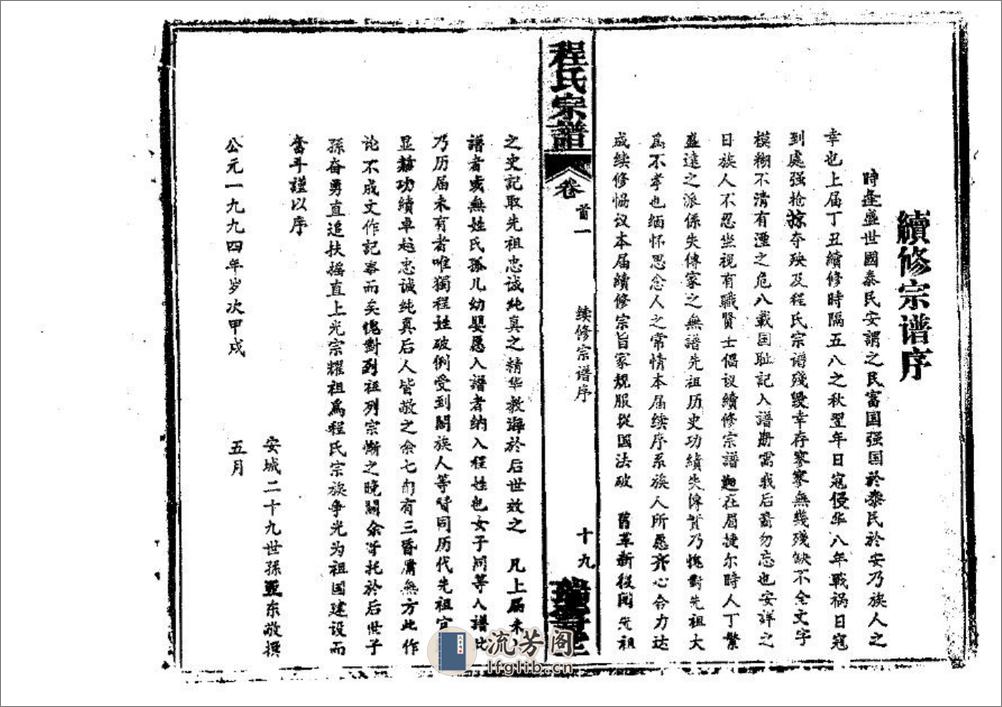 續修宗谱序
時逢盛世國泰民安謂之民富国强国於泰民於安乃族人之
幸也上届丁丑續修時隔五八之秋翌年日寇侵华八年戦祸日寇
到處强抢掠夺殃及程氏宗谱残缦幸存寥寥無幾残缺不全文字
模糊不清有湮之危八載国耻記入譜斯需我后裔勿忘也安詳之
日族人不忍坐視有職賢士倡议續修宗譜廹在眉捷尔時人丁繁
盛遠之派係失傳家之無譜先祖历史功績失傳實乃愧對先祖大
為不孝也缅怀思念人之常情本届续序系族人所愿齐心合力达
成续修協议本届續修宗旨家規服從国法破 舊革新役闻先祖
程氏宗譜
卷首一
续修宗谱序
十九
之史記取先祖忠诚純真之精华教诲於后世效之 凡上届未
譜者或無姓氏孤儿幼嬰愿入譜者纳入程姓也女子同等入谱比
乃历届未有者唯獨程姓破例受到閤族人等暂同历代先祖宜
显赫功績卓越忠诚純真后人皆敬之余七旬有三昏庸無方此作
论不成文作記事而矣愧對列祖列宗慚之晚關余等托於后世子
孫奋勇直追扶摇直上光宗耀祖為程氏宗族争光为祖国建設而
奮斗謹以序
安城二十九世孫 东敬撰
公元一九九四年岁次甲戍 五月
流芳阁
lfglib.cn